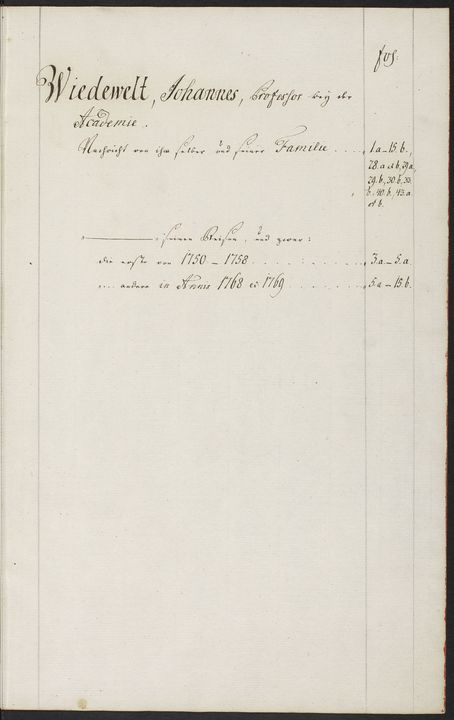 fol:
Wiedewelt, Johannes, Professor bey der
Academie.
Nachricht von ihm selber und seiner Familie . . . . 1.a–15.b.,
28.a et b, 29.a,
29.b, 30.b, 33.
b. 40.b. 43.a.
et b.
seinen Reisen, und zwar:
die erste von 1750 – 1758 . . . . . . . . 3.a – 5.a.
.... andere in Annis 1768 et 1769 . . . . . . . 5.a – 15.b.